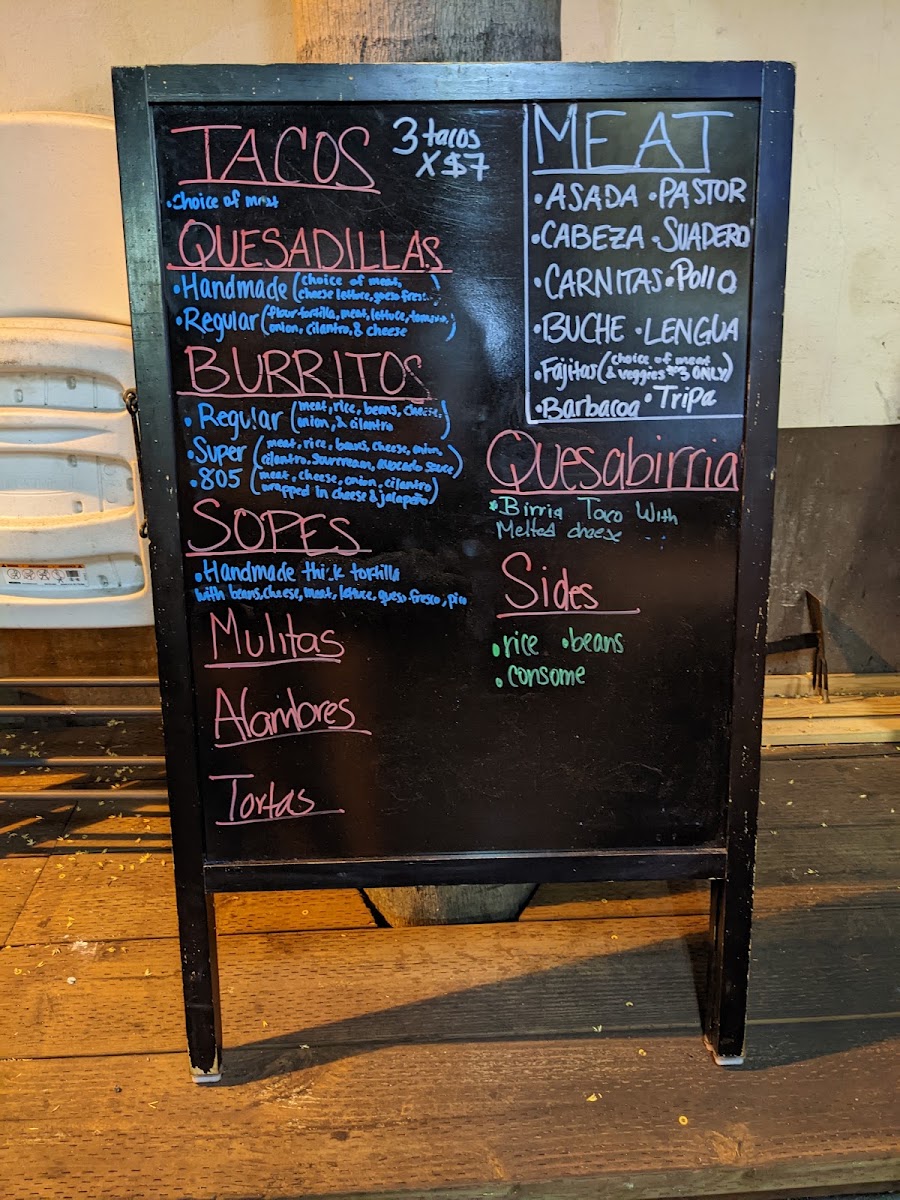 TACOS
3 tacos
X $7
•Choice of meat
QUESADILLAS
•Handmade (choice of meat,
cheese lettuce, queso fresco
•Regular (flour tortilla, meat, lettuce, tomato,)
onion, cilantro, & cheese
BURRITOS
•Regular (meat, rice, beans, cheese,)
onion, & cilantro
•Super (meat, rice, beans, cheese, onion,
cilantro, sourcream, avocado sauce)
•805 (meat, cheese, onion, cilantro
wrapped in cheese & jalapeño)
SOPES
•Handmade thick tortilla
with beans, cheese, meat, lettuce, queso fresco, pico
Mulitas
Alambres
Tortas
MEAT
•ASADA •PASTOR
•CABEZA •SUADERO
•CARNITAS •Pollo
•BUCHE •LENGUA
•Fajitas (choice of meat
& veggies ONLY)
•Barbacoa •Tripa
Quesabirria
•Birria Taco With
Melted cheese
Sides
•rice •beans
•consome